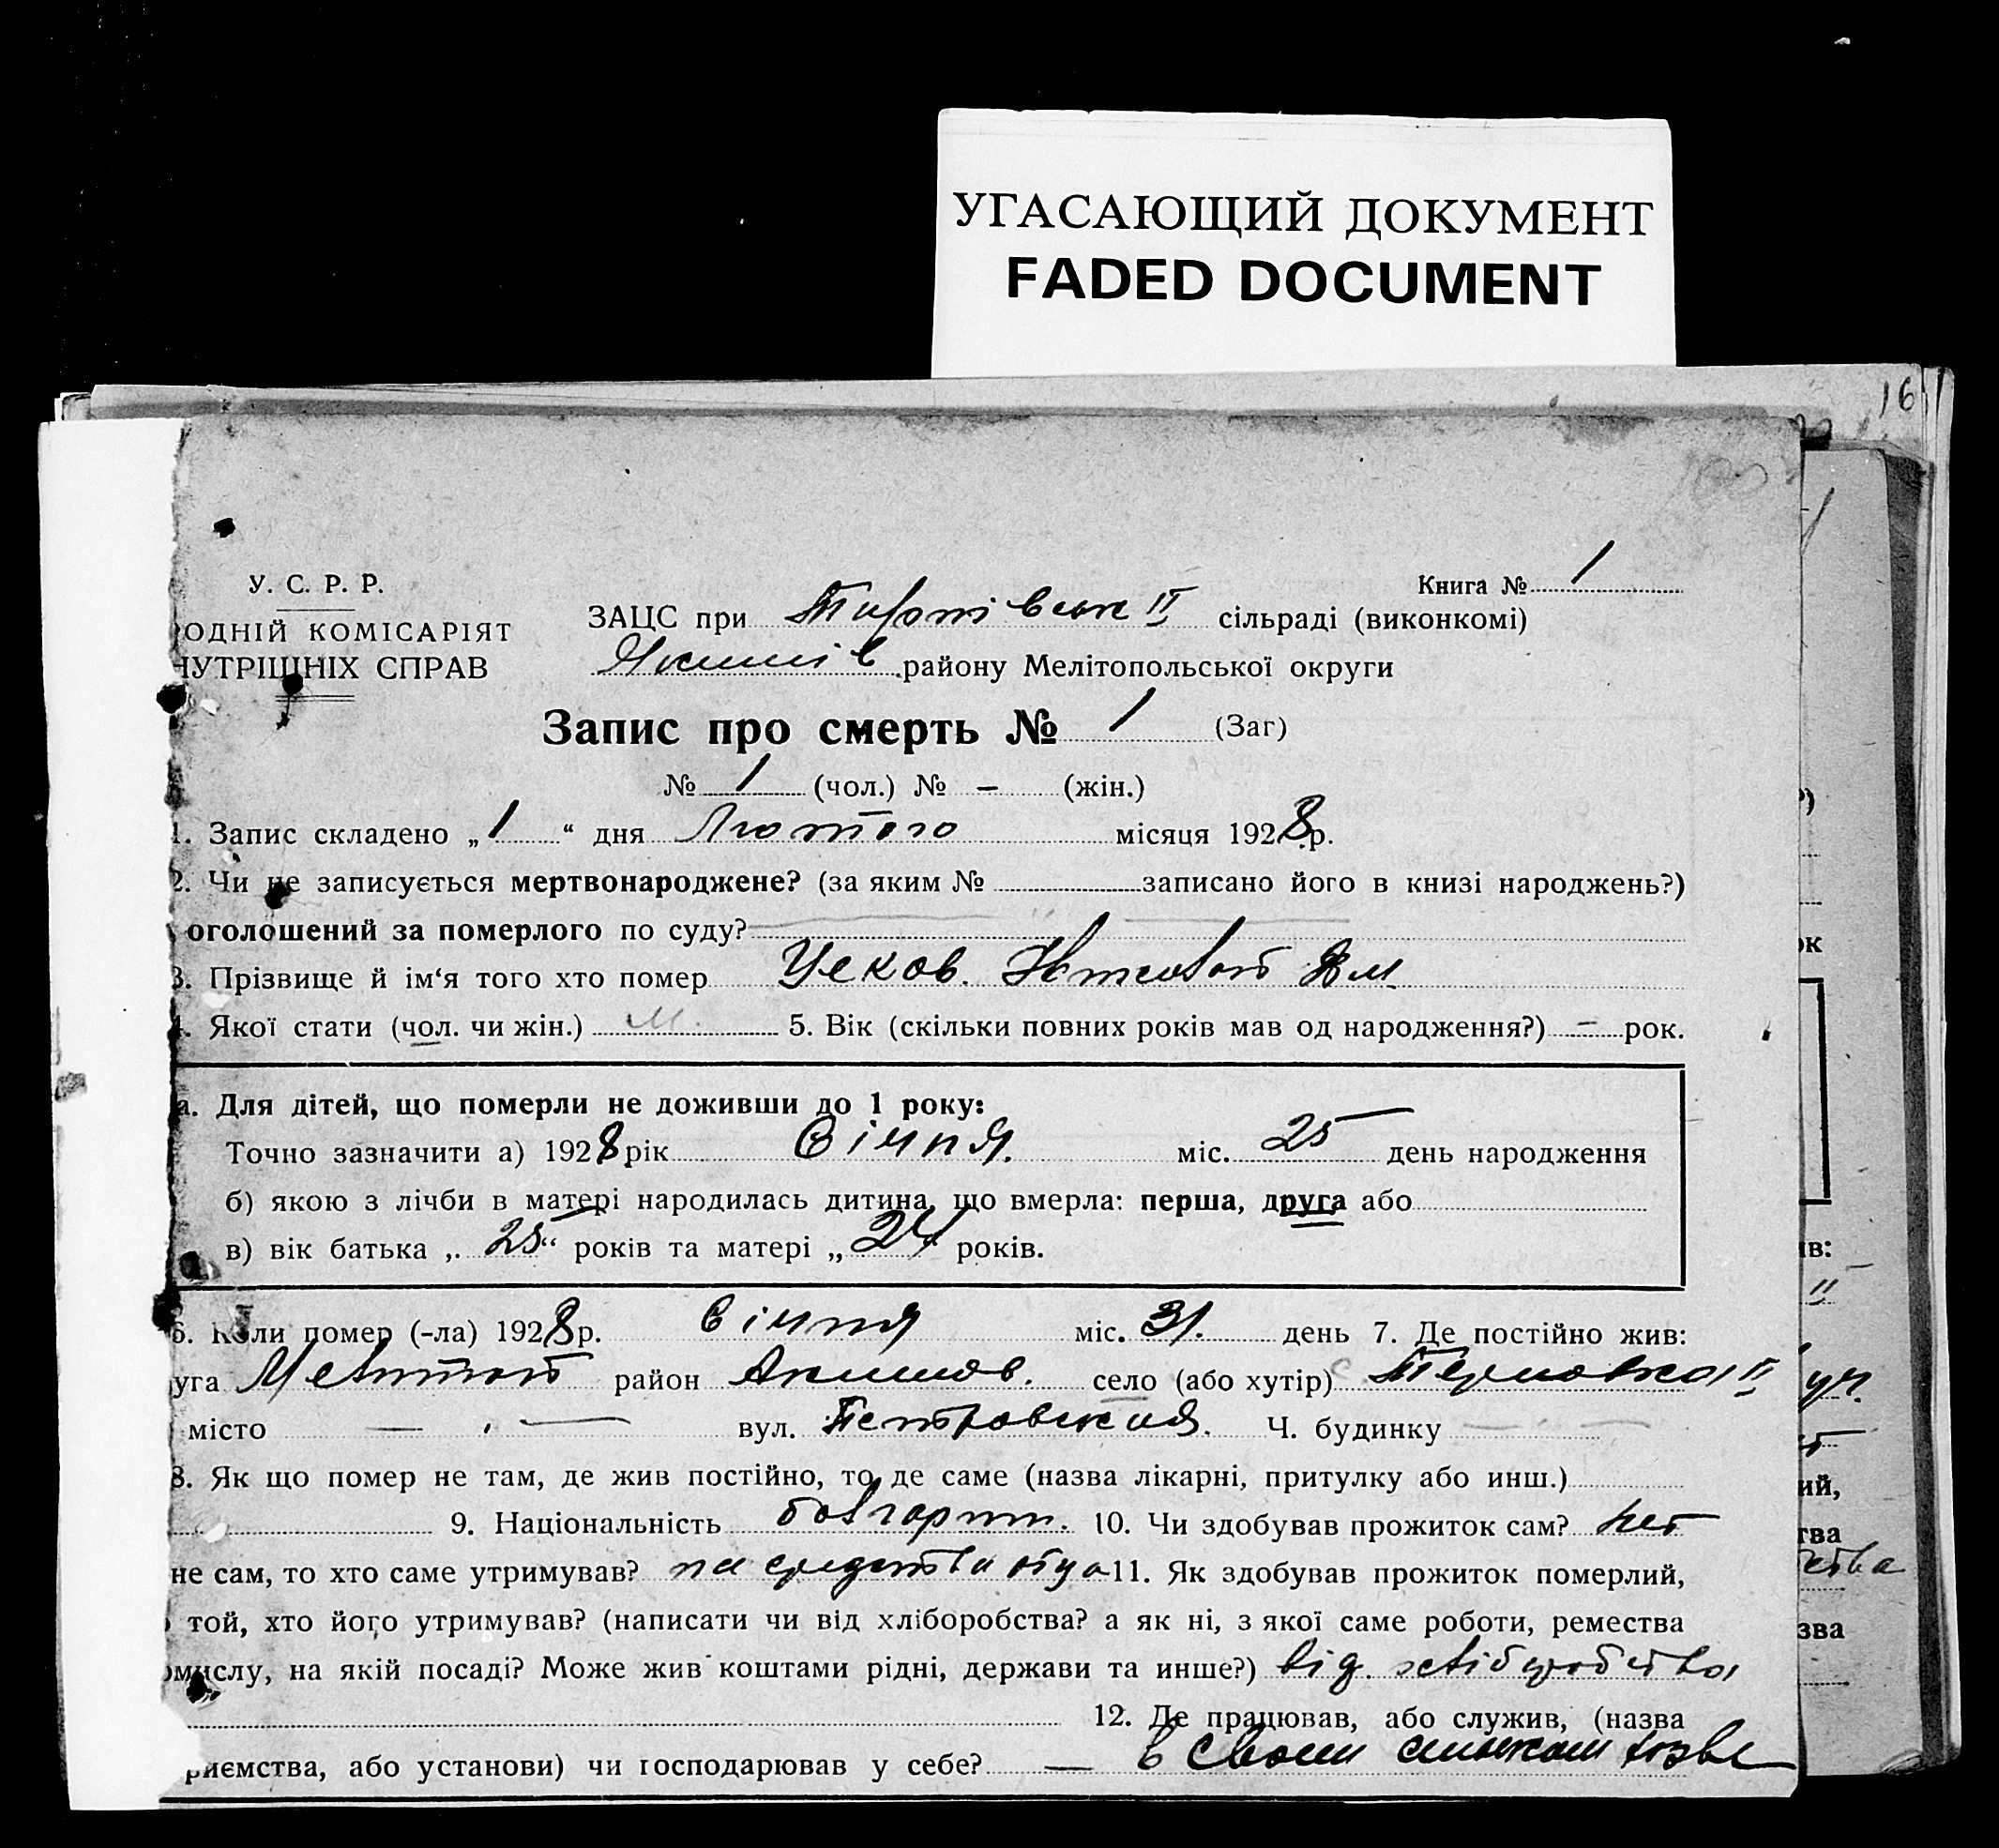 УГАСАЮЩИЙ ДОКУМЕНТ
FADED DOCUMENT
16
У. С. Р. Р.
ОДНІЙ КОМІСАРІЯТ
НУТРІШНІХ СПРАВ
Книга № 1
ЗАЦС при II сільраді (виконкомі)
району Мелітопольської округи
Запис про смерть № 1 (Заг)
№ 1 (чол.) № – (жін.)
1. Запис складено „1“ дня Лютого місяця 1928 р.
2. Чи не записується мертвонароджене? (за яким № записано його в книзі народжень?)
оголошений за померлого по суду?
3. Прізвище й ім‘я того хто помер Усков.
4. Якої стати (чол. чи жін.) м. 5. Вік (скільки повних років мав од народження?) – рок.
а. Для дітей, що померли не доживши до 1 року:
Точно зазначити а) 1928 рік Січня. міс. 25 день народження
б) якою з лічби в матері народилась дитина, що вмерла: перша, друга або
в) вік батька „25“ років та матері „24 років.
6. Коли помер (-ла) 1928 р. Січня міс. 31. день 7. Де постійно жив:
уга Мелитоп район Акимов. село (або хутір) Терновка II
місто — вул. Петровская. Ч. будинку —
8. Як що помер не там, де жив постійно, то де саме (назва лікарні, притулку або инш.)
9. Національність болгарин. 10. Чи здобував прожиток сам? нет
не сам, то хто саме утримував? на средства отца 11. Як здобував прожиток померлий,
той, хто його утримував? (написати чи від хліборобства? а як ні, з якої саме роботи, ремества
омислу, на якій посаді? Може жив коштами рідні, держави та инше?) від хліборобства
12. Де працював, або служив, (назва
риємства, або установи) чи господарював у себе? — в своем сельском хозве